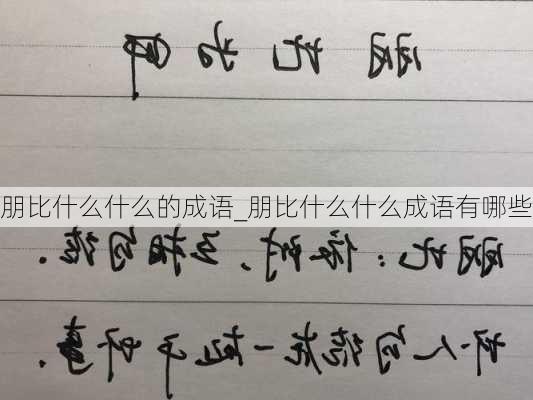 朋比
朋比什么什么的成语_朋比什么什么成语有哪些
朋比：依附，互相勾结。
坏人勾结在一起干坏事。